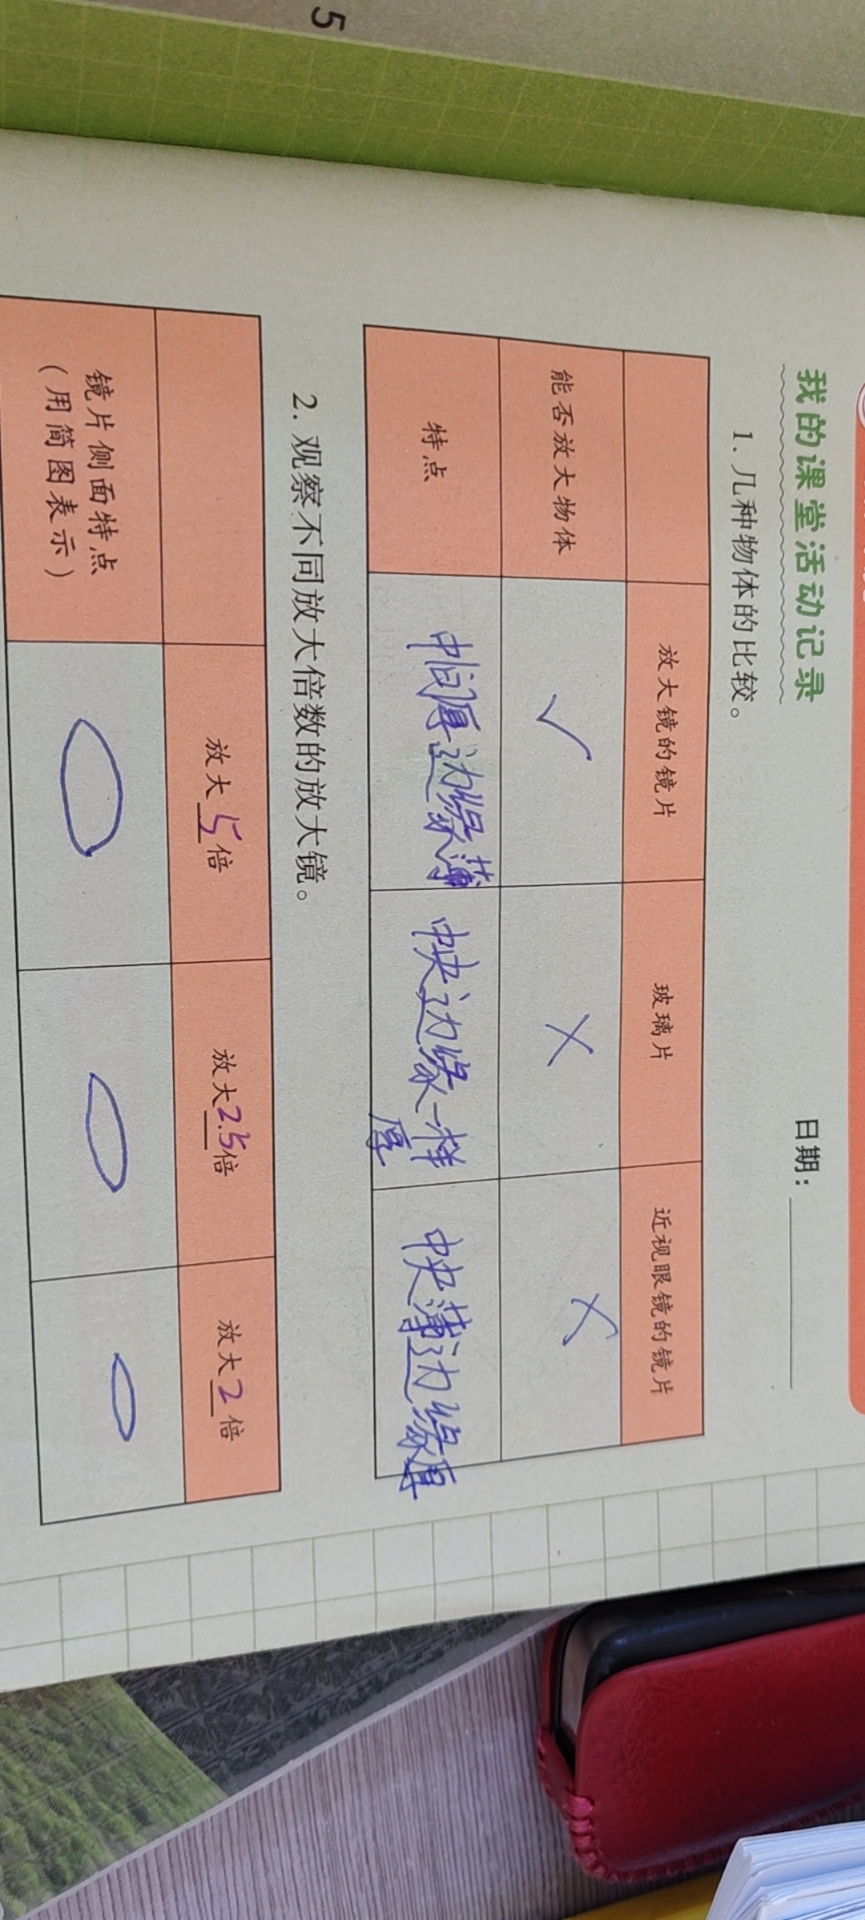 5
我的课堂活动记录
日期：
1. 几种物体的比较。
放大镜的镜片 玻璃片 近视眼镜的镜片
能否放大物体 ✓ × ×
特点 中间厚边缘薄 中央边缘一样厚 中央薄边缘厚
2. 观察不同放大倍数的放大镜。
放大5倍 放大2.5倍 放大2倍
镜片侧面特点
（用简图表示）